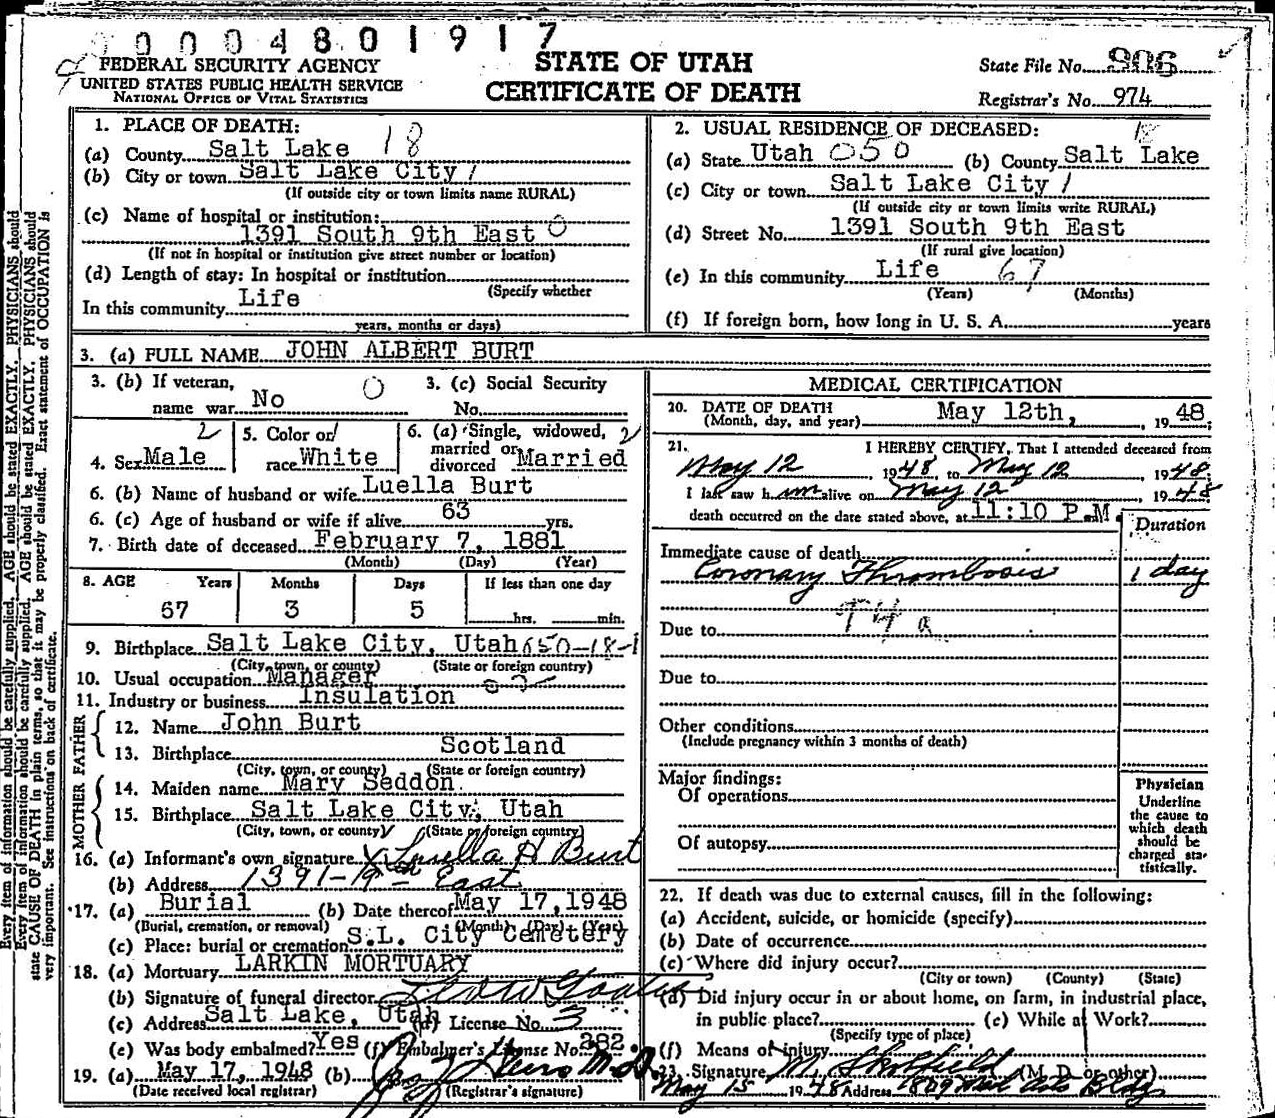 0004801917
FEDERAL SECURITY AGENCY
UNITED STATES PUBLIC HEALTH SERVICE
NATIONAL OFFICE OF VITAL STATISTICS
STATE OF UTAH
CERTIFICATE OF DEATH
State File No. 906
Registrar's No. 974
1. PLACE OF DEATH: 18
(a) County Salt Lake
(b) City or town Salt Lake City /
(If outside city or town limits name RURAL)
(c) Name of hospital or institution:
1391 South 9th East 0
(If not in hospital or institution give street number or location)
(d) Length of stay: In hospital or institution
(Specify whether
In this community Life
years, months or days)
2. USUAL RESIDENCE OF DECEASED: 18
(a) State Utah 050 (b) County Salt Lake
(c) City or town Salt Lake City /
(If outside city or town limits write RURAL)
(d) Street No. 1391 South 9th East
(If rural give location)
(e) In this community Life 67
(Years) (Months)
(f) If foreign born, how long in U. S. A. years
3. (a) FULL NAME JOHN ALBERT BURT
3. (b) If veteran, 0 3. (c) Social Security
name war No No.
4. Sex Male 2 5. Color or race White 6. (a) Single, widowed, married or divorced Married 2
6. (b) Name of husband or wife Luella Burt
6. (c) Age of husband or wife if alive 63 yrs.
7. Birth date of deceased February 7, 1881
(Month) (Day) (Year)
8. AGE Years Months Days If less than one day
67 3 5 hrs. min.
9. Birthplace Salt Lake City, Utah 050-18-1
(City, town, or county) (State or foreign country)
10. Usual occupation Manager
11. Industry or business Insulation
FATHER
12. Name John Burt
13. Birthplace Scotland
(City, town, or county) (State or foreign country)
MOTHER
14. Maiden name Mary Seddon
15. Birthplace Salt Lake City, Utah
(City, town, or county) (State or foreign country)
16. (a) Informant's own signature x Luella H Burt
(b) Address 1391-19th East
17. (a) Burial (b) Date thereof May 17, 1948
(Burial, cremation, or removal) (Month) (Day) (Year)
(c) Place: burial or cremation S.L. City Cemetery
18. (a) Mortuary LARKIN MORTUARY
(b) Signature of funeral director
(c) Address Salt Lake, Utah (d) License No. 3
(e) Was body embalmed? Yes (f) Embalmer's License No. 382
19. (a) May 17, 1948 (b) M.D.
(Date received local registrar) (Registrar's signature)
MEDICAL CERTIFICATION
20. DATE OF DEATH May 12th, , 1948;
(Month, day, and year)
21. I HEREBY CERTIFY, That I attended deceased from
May 12 1948, to May 12, 1948.
I last saw him alive on May 12, 1948
death occurred on the date stated above, at 11:10 P.M.
Duration
Immediate cause of death
Coronary Thrombosis 1 day
94 a
Due to
Due to
Other conditions
(Include pregnancy within 3 months of death)
Major findings:
Of operations
Of autopsy
Physician
Underline
the cause to
which death
should be
charged sta-
tistically.
22. If death was due to external causes, fill in the following:
(a) Accident, suicide, or homicide (specify)
(b) Date of occurrence
(c) Where did injury occur?
(City or town) (County) (State)
(d) Did injury occur in or about home, on farm, in industrial place,
in public place? (e) While at Work?
(Specify type of place)
(f) Means of injury
23. Signature (M. D. or other)
May 15 1948 Address Bldg
Every item of information should be carefully supplied. AGE should be stated EXACTLY. PHYSICIANS should
state CAUSE OF DEATH in plain terms, so that it may be properly classified. Exact statement of OCCUPATION is
very important. See instructions on back of certificate.